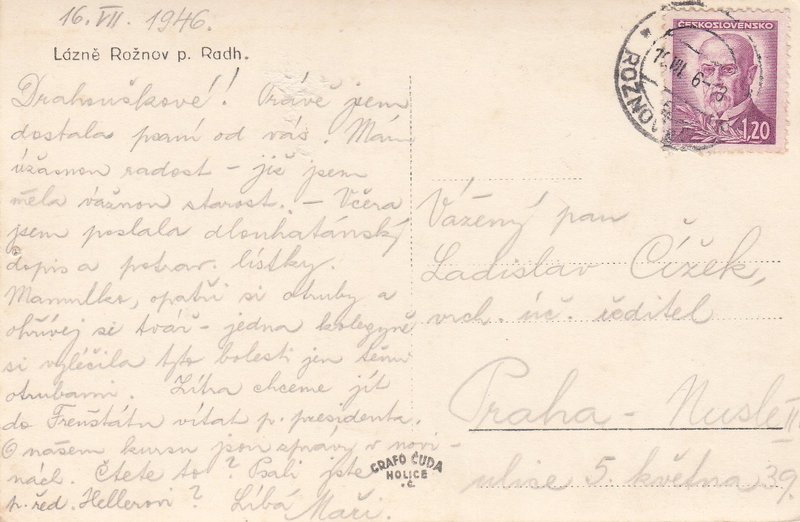 16. VII. 1946.
Lázně Rožnov p. Radh.
Drahouškové! Právě jsem
dostala psaní od vás. Mám
úžasnou radost - již jsem
měla vážnou starost. - Včera
jsem poslala dlouhatánský
dopis a potrav. lístky.
Mamulko, opatři si otruby a
ohřívej si tvář - jedna kolegyně
si vyléčila tyto bolesti jen těmi
otrubami. Zítra chceme jít
do Frenštátu vítat p. presidenta.
O našem kursu jsou zprávy v novi-
nách. Čtete to? Psali jste
p. řed. Hellerovi? Líbá Maři.
ČESKOSLOVENSKO
1,20
ROŽNOV
Vážený pan
Ladislav Čížek,
vrch. úč. ředitel
Praha - Nusle II
ulice 5. května 39.
GRAFO ČUDA
HOLICE